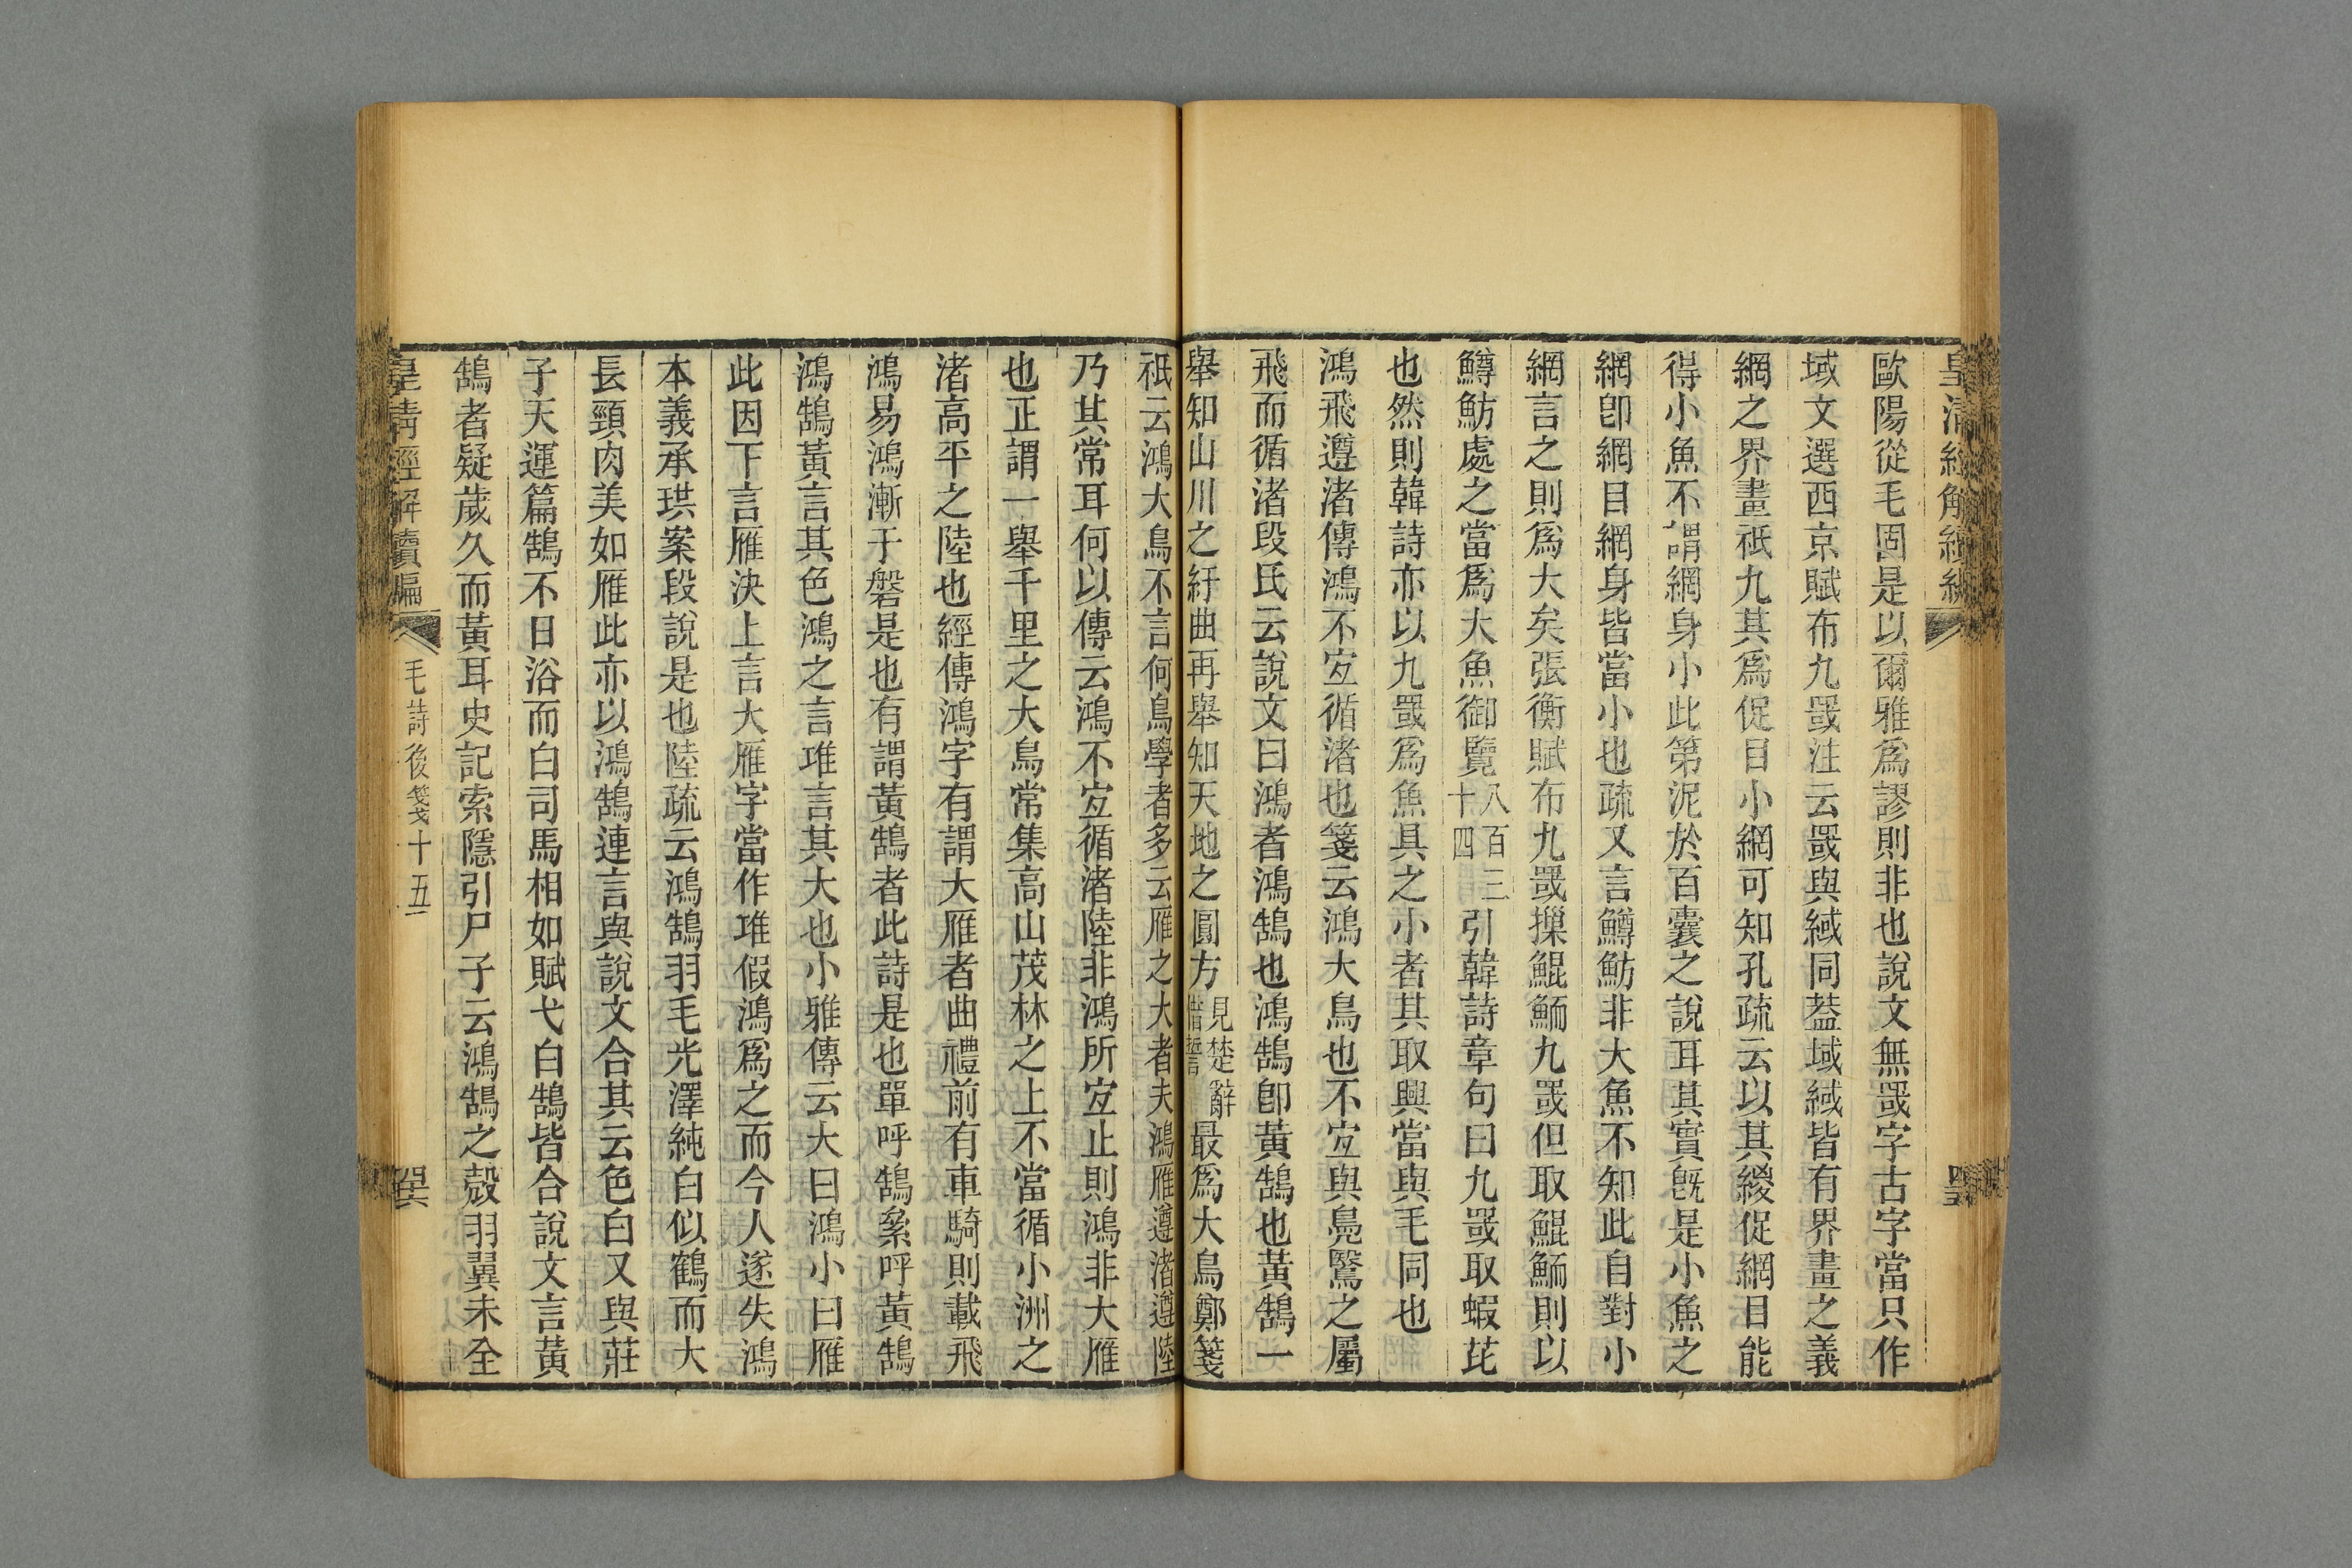 歐陽從毛固是以爾雅爲謬則非也說文無罭字古字當只作
域文選西京賦布九罭注云罭與緎同葢域緎皆有界畫之義
網之界畫祇九其爲促目小網可知孔疏云以其緵促網目能
得小魚不謂網身小此第泥於百囊之說耳其實旣是小魚之
網卽網目網身皆當小也疏又言鱒魴非大魚不知此自對小
網言之則爲大矣張衡賦布九罭摷鯤鮞九罭但取鯤鮞則以
鱒魴處之當爲大魚御覽八百三十四引韓詩章句曰九罭取蝦芘
也然則韓詩亦以九罭爲魚具之小者其取興當與毛同也
鴻飛遵渚傳鴻不宐循渚也箋云鴻大鳥也不宐與鳧鷖之屬
飛而循渚段氏云說文曰鴻者鴻鵠也鴻鵠卽黃鵠也黃鵠一
舉知山川之紆曲再舉知天地之圓方見楚辭惜誓最爲大鳥鄭箋
祇云鴻大鳥不言何鳥學者多云雁之大者夫鴻雁遵渚遵陸
乃其常耳何以傳云鴻不宐循渚陸非鴻所宐止則鴻非大雁
也正謂一舉千里之大鳥常集高山茂林之上不當循小洲之
渚高平之陸也經傳鴻字有謂大雁者曲禮前有車騎則載飛
鴻易鴻漸于磐是也有謂黃鵠者此詩是也單呼鵠絫呼黃鵠
鴻鵠黃言其色鴻之言琟言其大也小雅傳云大曰鴻小曰雁
此因下言雁決上言大雁字當作琟假鴻爲之而今人遂失鴻
本義承珙案段說是也陸疏云鴻鵠羽毛光澤純白似鶴而大
長頸肉美如雁此亦以鴻鵠連言與說文合其云色白又與莊
子天運篇鵠不日浴而白司馬相如賦弋白鵠皆合說文言黃
鵠者疑歲久而黃耳史記索隱引尸子云鴻鵠之鷇羽翼未全
皇淸經解續編
毛詩後箋十五